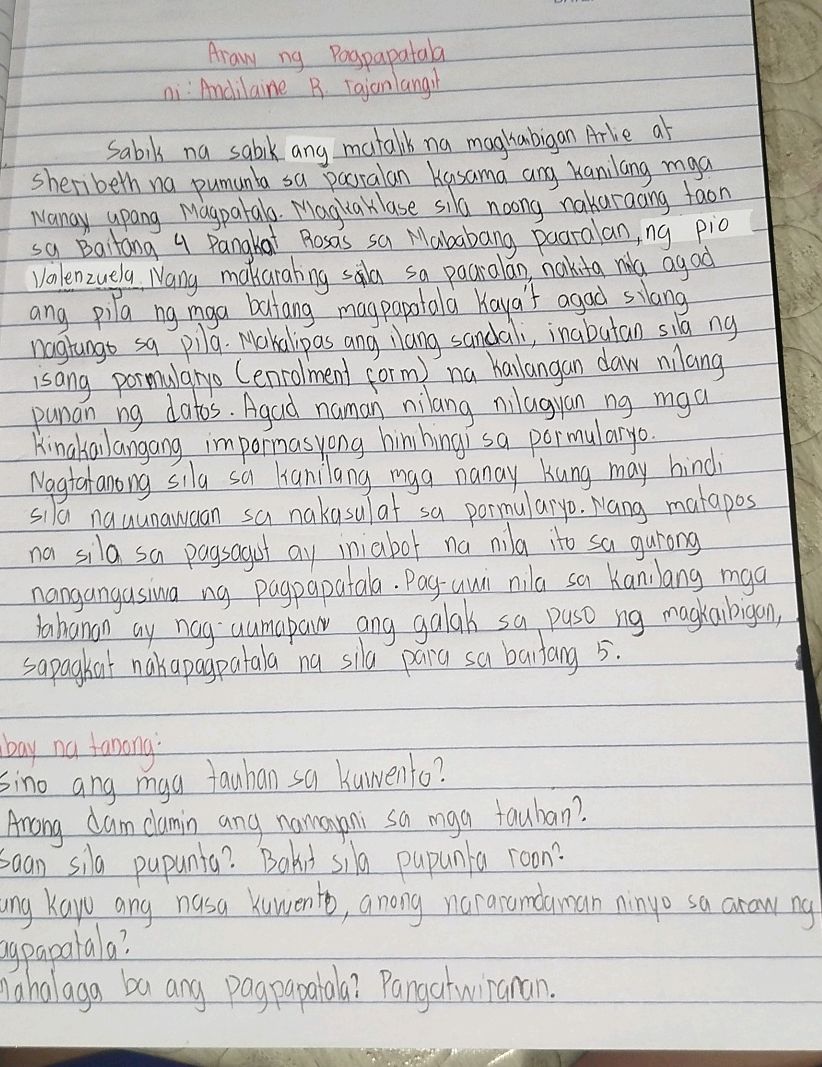 Araw ng Pagpapatala
ni: Andilaine R. Tajanlangit
Sabik na sabik ang matalik na magkaibigan Arlie at
Sheribeth na pumunta sa paaralan kasama ang kanilang mga
Nanay upang Magpatala. Magkaklase sila noong nakaraang taon
sa Baitang 4 Pangkat Rosas sa Mababang paaralan, ng Pio
Valenzuela. Nang makarating sila sa paaralan, nakita nila agad
ang pila ng mga batang magpapatala kaya't agad silang
nagtungo sa pila. Makalipas ang ilang sandali, inabutan sila ng
isang pormularyo (enrolment form) na kailangan daw nilang
punan ng datos. Agad naman nilang nilagyan ng mga
kinakailangang impormasyong hinihingi sa pormularyo.
Nagtatanong sila sa kanilang mga nanay kung may hindi
sila nauunawaan sa nakasulat sa pormularyo. Nang matapos
na sila sa pagsagot ay iniabot na nila ito sa gurong
nangangasiwa ng pagpapatala. Pag-uwi nila sa kanilang mga
tahanan ay nag-uumapaw ang galak sa puso ng magkaibigan,
sapagkat nakapagpatala na sila para sa baitang 5.
bay na tanong:
Sino ang mga tauhan sa kuwento?
Anong damdamin ang namayani sa mga tauhan?
Saan sila pupunta? Bakit sila pupunta roon?
ung kayo ang nasa kuwento, anong nararamdaman ninyo sa araw ng
agpapatala?
mahalaga ba ang pagpapatala? Pangatwiranan.